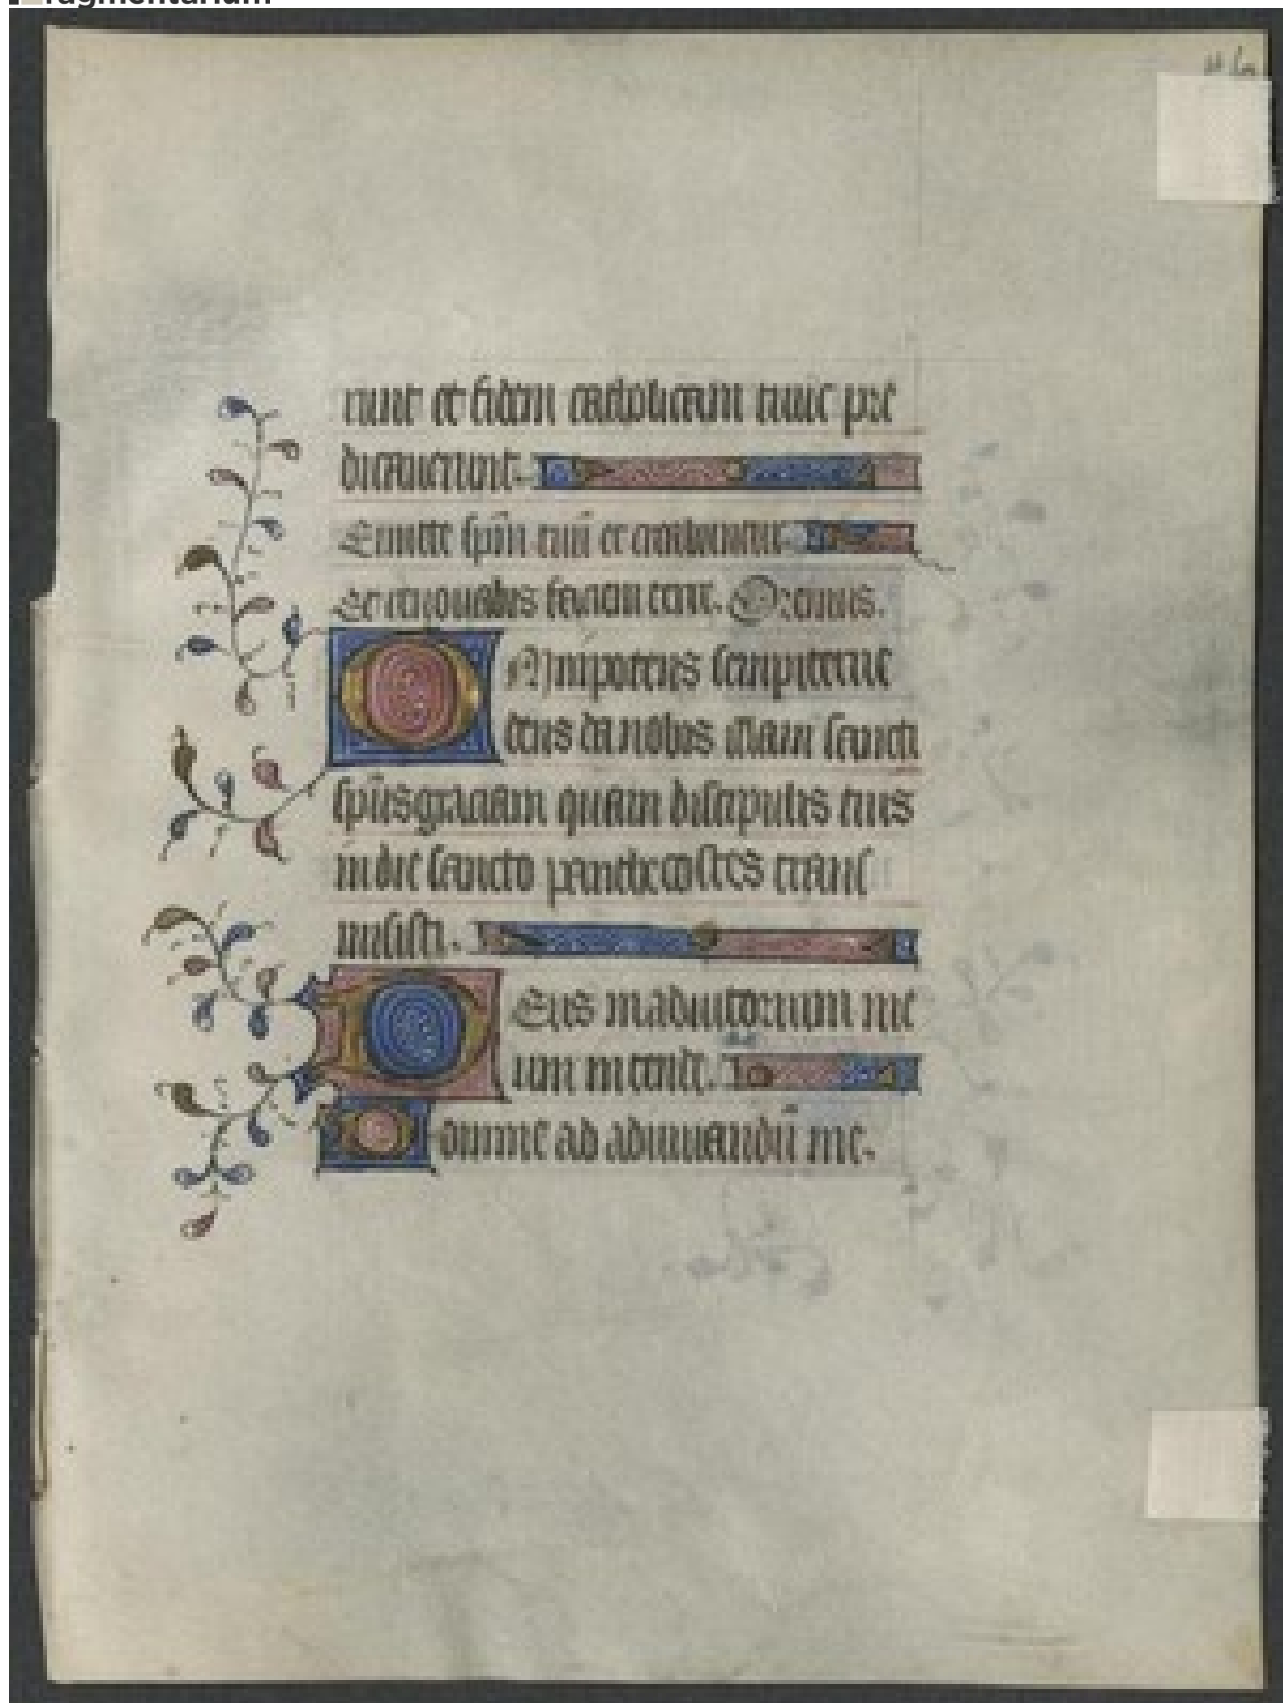 fragmentarium
runt et fidem catholicam tunc pre
dicauerunt.
Emitte sp̄m tuū et creabuntur
Et renouabis faciem terre. Oremus.
Omnipotens sempiterne
deus da nobis illam sancti
sp̄us graciam quam discipulis tuis
in die sancto panthecostes trans
misisti.
Deus in adiutorium me
um intende.
Domine ad adiuuandū me.